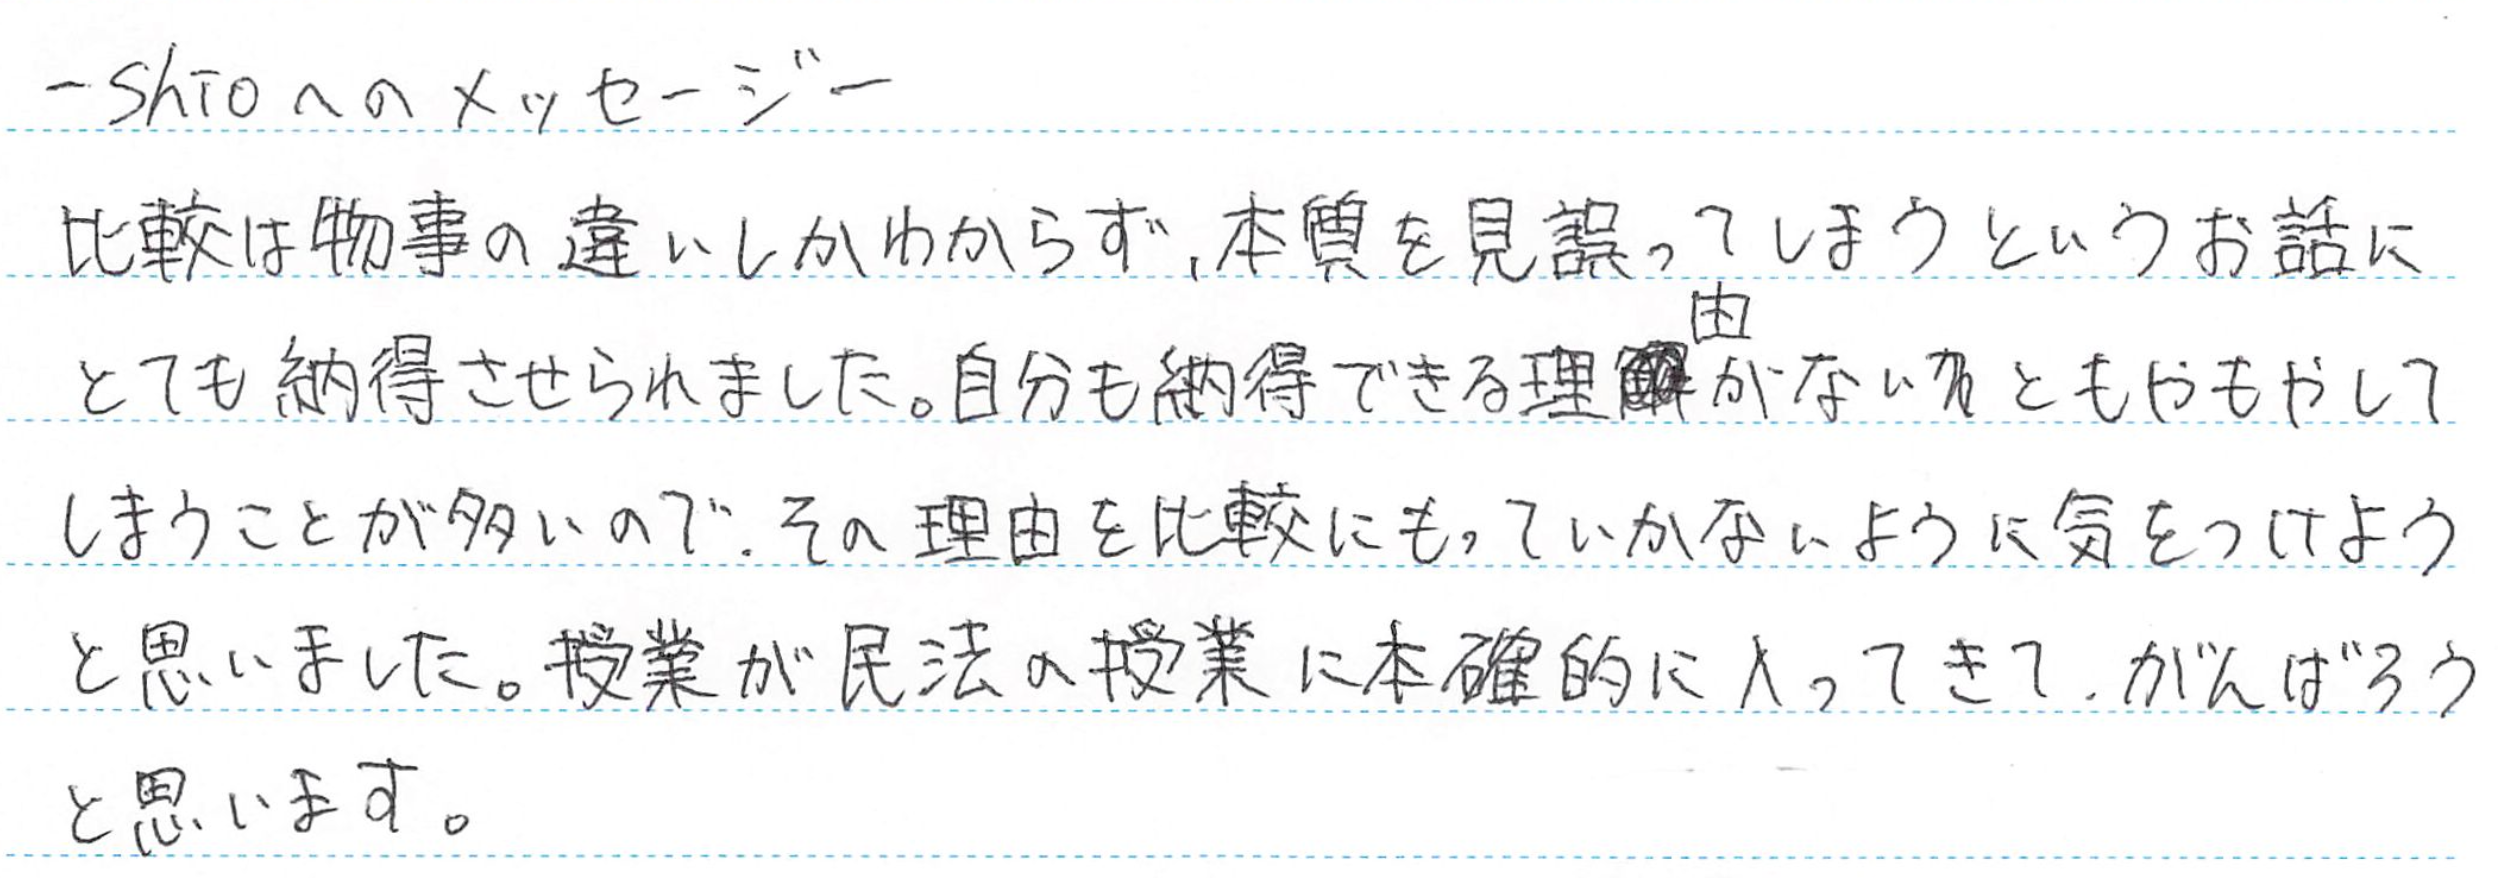 －Shioへのメッセージー
比較は物事の違いしかわからず、本質を見誤ってしまうというお話に
とても納得させられました。自分も納得できる理由がないとともやもやして
しまうことが多いので、その理由を比較にもっていかないように気をつけよう
と思いました。授業が民法の授業に本確的に入ってきて、がんばろう
と思います。